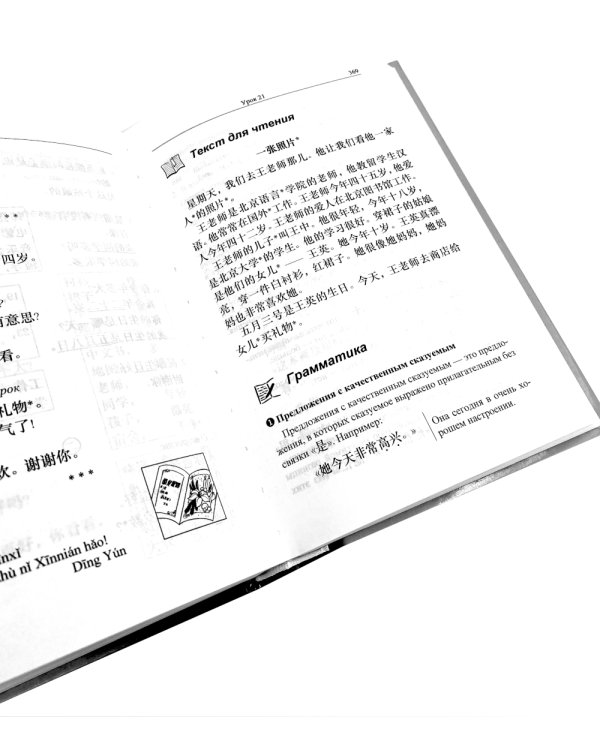 * *
四岁。
?
有意思?
看。
рок
礼物*。
气了!
欢。谢谢你。
* * *
nxǐ
hù nǐ Xīnnián hǎo!
Dīng Yún
Урок 21
369
Текст для чтения
一张照片*
星期天，我们去王老师那儿。他让我们看他一家
人*的照片*。
王老师是北京语言*学院的老师，他教留学生汉
语。他常常在国外*工作。王老师今年四十五岁，他爱
人今年四十二岁。王老师的爱人在北京图书馆工作。
王老师的儿子*叫王中。他很年轻，今年十八岁，
是北京大学*的学生。他的学习很好。穿裙子的姑娘
是他们的女儿*——王英。她今年十岁。王英真漂
亮，穿一件白衬衫，红裙子。她很像她妈妈，她妈
妈也非常喜欢她。
五月三号是王英的生日。今天，王老师去商店给
女儿*买礼物*。
Грамматика
❶ Предложения с качественным сказуемым
Предложения с качественным сказуемым — это предло-
жения, в которых сказуемое выражено прилагательным без
связки «是». Например:
«她今天非常高兴。»
Она сегодня в очень хо-
рошем настроении.